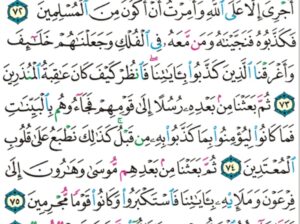 أَجْرِىَ إِلَّا عَلَى ٱللَّهِ وَأُمِرْتُ أَنْ أَكُونَ مِنَ ٱلْمُسْلِمِينَ ٧٢
فَكَذَّبُوهُ فَنَجَّيْنَٰهُ وَمَن مَّعَهُۥ فِى ٱلْفُلْكِ وَجَعَلْنَٰهُمْ خَلَٰٓئِفَ
وَأَغْرَقْنَا ٱلَّذِينَ كَذَّبُوا۟ بِـَٔايَٰتِنَا فَٱنظُرْ كَيْفَ كَانَ عَٰقِبَةُ ٱلْمُنذَرِينَ
٧٣ ثُمَّ بَعَثْنَا مِنۢ بَعْدِهِۦ رُسُلًا إِلَىٰ قَوْمِهِمْ فَجَآءُوهُم بِٱلْبَيِّنَٰتِ
فَمَا كَانُوا۟ لِيُؤْمِنُوا۟ بِمَا كَذَّبُوا۟ بِهِۦ مِن قَبْلُ كَذَٰلِكَ نَطْبَعُ عَلَىٰ قُلُوبِ
ٱلْمُعْتَدِينَ ٧٤ ثُمَّ بَعَثْنَا مِنۢ بَعْدِهِم مُّوسَىٰ وَهَٰرُونَ إِلَىٰ
فِرْعَوْنَ وَمَلَإِي۟هِۦ بِـَٔايَٰتِنَا فَٱسْتَكْبَرُوا۟ وَكَانُوا۟ قَوْمًا مُّجْرِمِينَ ٧٥